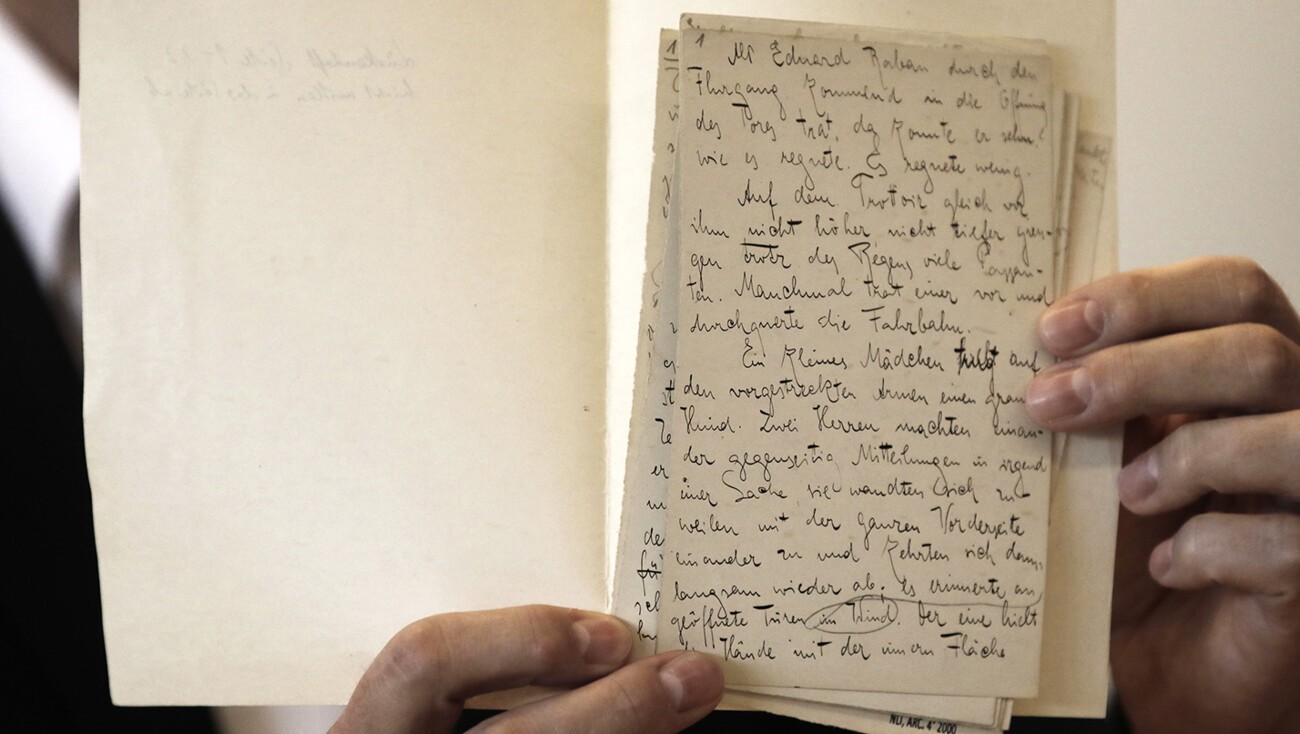 1 Als Eduard Raban durch den
Flurgang kommend in die Öffnung
des Tores trat, da konnte er sehn,
wie es regnete. Es regnete wenig.
Auf dem Trottoir gleich vor
ihm nicht höher nicht tiefer gien-
gen trotz des Regens viele Passan-
ten. Manchmal trat einer vor und
durchquerte die Fahrbahn.
Ein kleines Mädchen auf
den vorgestreckten Armen einen grauen
Hund. Zwei Herren machten einan-
der gegenseitig Mitteilungen in irgend
einer Sache, sie wandten sich zu-
weilen mit der ganzen Vorderseite
einander zu und kehrten sich dann
langsam wieder ab. Es erinnerte an
geöffnete Türen im Wind. Der eine hielt
Hände mit der innern Fläche
NLI, ARC. 4° 2000